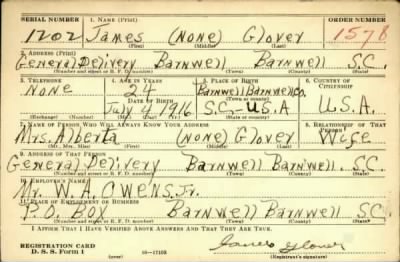 SERIAL NUMBER 1. NAME (Print) ORDER NUMBER
1202 James (None) Glover 1578
(First) (Middle) (Last)
2. ADDRESS (Print)
General Delivery Barnwell Barnwell S.C.
(Number and street or R. F. D. number) (Town) (County) (State)
3. TELEPHONE 4. AGE IN YEARS 5. PLACE OF BIRTH 6. COUNTRY OF CITIZENSHIP
None 24 Barnwell Barnwell Co.
DATE OF BIRTH (Town or county)
July 4 1916 S.C. U.S.A U.S.A.
(Exchange) (Number) (Mo.) (Day) (Yr.) (State or country)
7. NAME OF PERSON WHO WILL ALWAYS KNOW YOUR ADDRESS 8. RELATIONSHIP OF THAT PERSON
Mrs. Alberta (None) Glover Wife
(Mr., Mrs., Miss) (First) (Middle) (Last)
9. ADDRESS OF THAT PERSON
General Delivery Barnwell Barnwell S.C.
(Number and street or R. F. D. number) (Town) (County) (State)
10. EMPLOYER'S NAME
Mr. W. A. Owens, Jr.
11. PLACE OF EMPLOYMENT OR BUSINESS
P.O. Box Barnwell Barnwell S.C.
(Number and street or R. F. D. number) (Town) (County) (State)
I AFFIRM THAT I HAVE VERIFIED ABOVE ANSWERS AND THAT THEY ARE TRUE.
REGISTRATION CARD James Glover
D. S. S. Form 1 (over) 16—17105 (Registrant's signature)